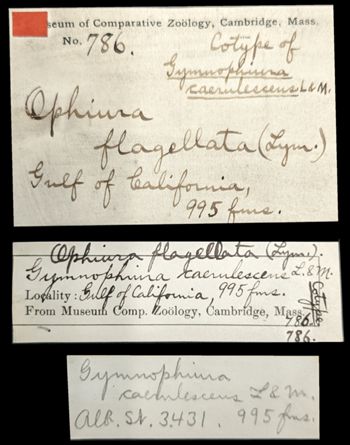 seum of Comparative Zoölogy, Cambridge, Mass.
No. 786.
Cotype of
Gymnophiura
caerulescens L & M.
Ophiura
flagellata (Lym.)
Gulf of California,
995 fms.
Ophiura flagellata (Lym.).
Gymnophiura caerulescens L. & M.
Locality: Gulf of California, 995 fms.
From Museum Comp. Zoölogy, Cambridge, Mass.
Cotype
786.
786.
Gymnophiura
caerulescens L & M.
Alb. St. 3431. 995 fms.